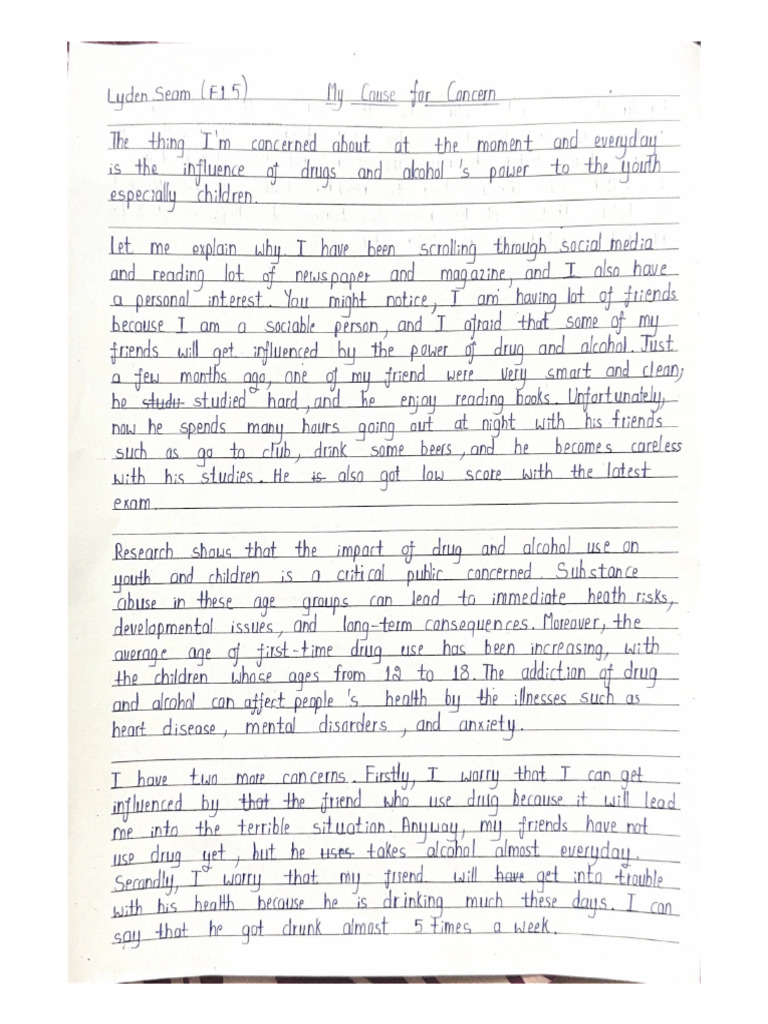 Lyden Seam (F15) My Cause for Concern
The thing I'm concerned about at the moment and everyday
is the influence of drugs and alcohol 's power to the youth
especially children.
Let me explain why. I have been scrolling through social media
and reading lot of newspaper and magazine, and I also have
a personal interest. You might notice, I am having lot of friends
because I am a sociable person, and I afraid that some of my
friends will get influenced by the power of drug and alcohol. Just
a few months ago, one of my friend were very smart and clean;
he studi studied hard, and he enjoy reading books. Unfortunately,
now he spends many hours going out at night with his friends
such as go to club, drink some beers, and he becomes careless
with his studies. He is also got low score with the latest
exam.
Research shows that the impact of drug and alcohol use on
youth and children is a critical public concerned. Substance
abuse in these age groups can lead to immediate heath risks,
developmental issues, and long-term consequences. Moreover, the
average age of first-time drug use has been increasing, with
the children whose ages from 12 to 18. The addiction of drug
and alcohol can affect people 's health by the illnesses such as
heart disease, mental disorders, and anxiety.
I have two more concerns. Firstly, I worry that I can get
influenced by that the friend who use drug because it will lead
me into the terrible situation. Anyway, my friends have not
use drug yet, but he uses takes alcohol almost everyday.
Secondly, I worry that my friend will have get into trouble
with his health because he is drinking much these days. I can
say that he got drunk almost 5 times a week.